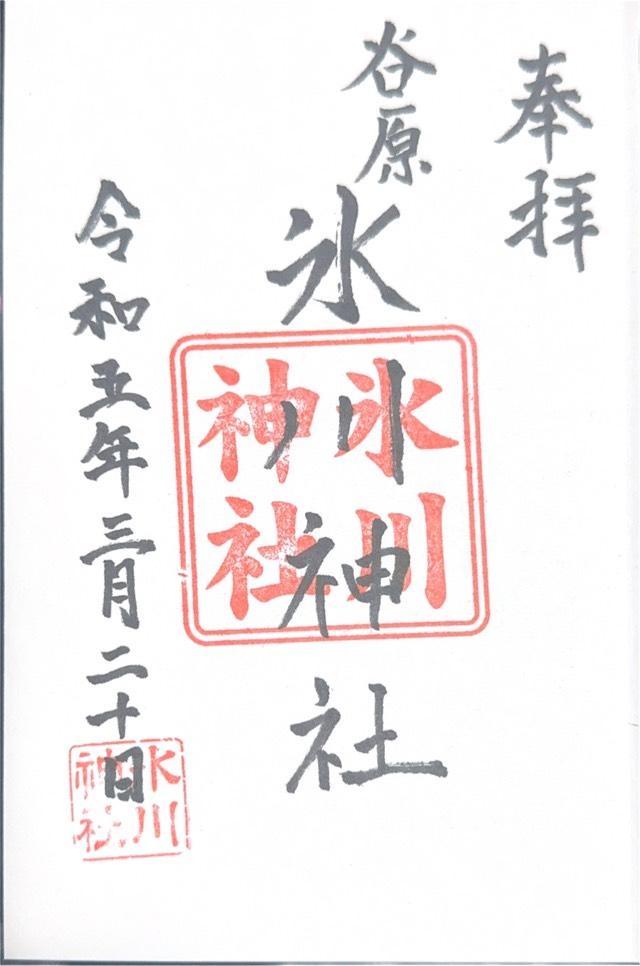 奉拝
谷原
氷川神社
氷川
神社
令和五年三月二十日
氷川
神社